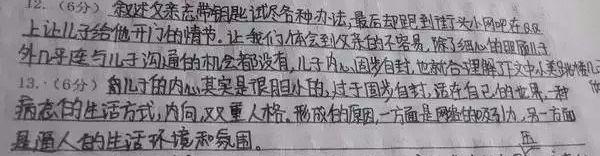 12.(6分) 叙述父亲忘带钥匙试尽各种办法,最后却跑到街头小网吧在QQ
上让儿子给他开门的情节。让我们体会到父亲的不容易,除了细心的照顾儿子
外几乎连与儿子沟通的机会都没有,儿子内心固步自封,也就合理解了文中小美
13.(6分) 儿子的内心其实是很胆小的,过于固步自封,活在自己的世界,一种
病态的生活方式,内向,双重人格。形成的原因,一方面是网络的吸引力,另一方面
是逼人的生活环境和氛围。